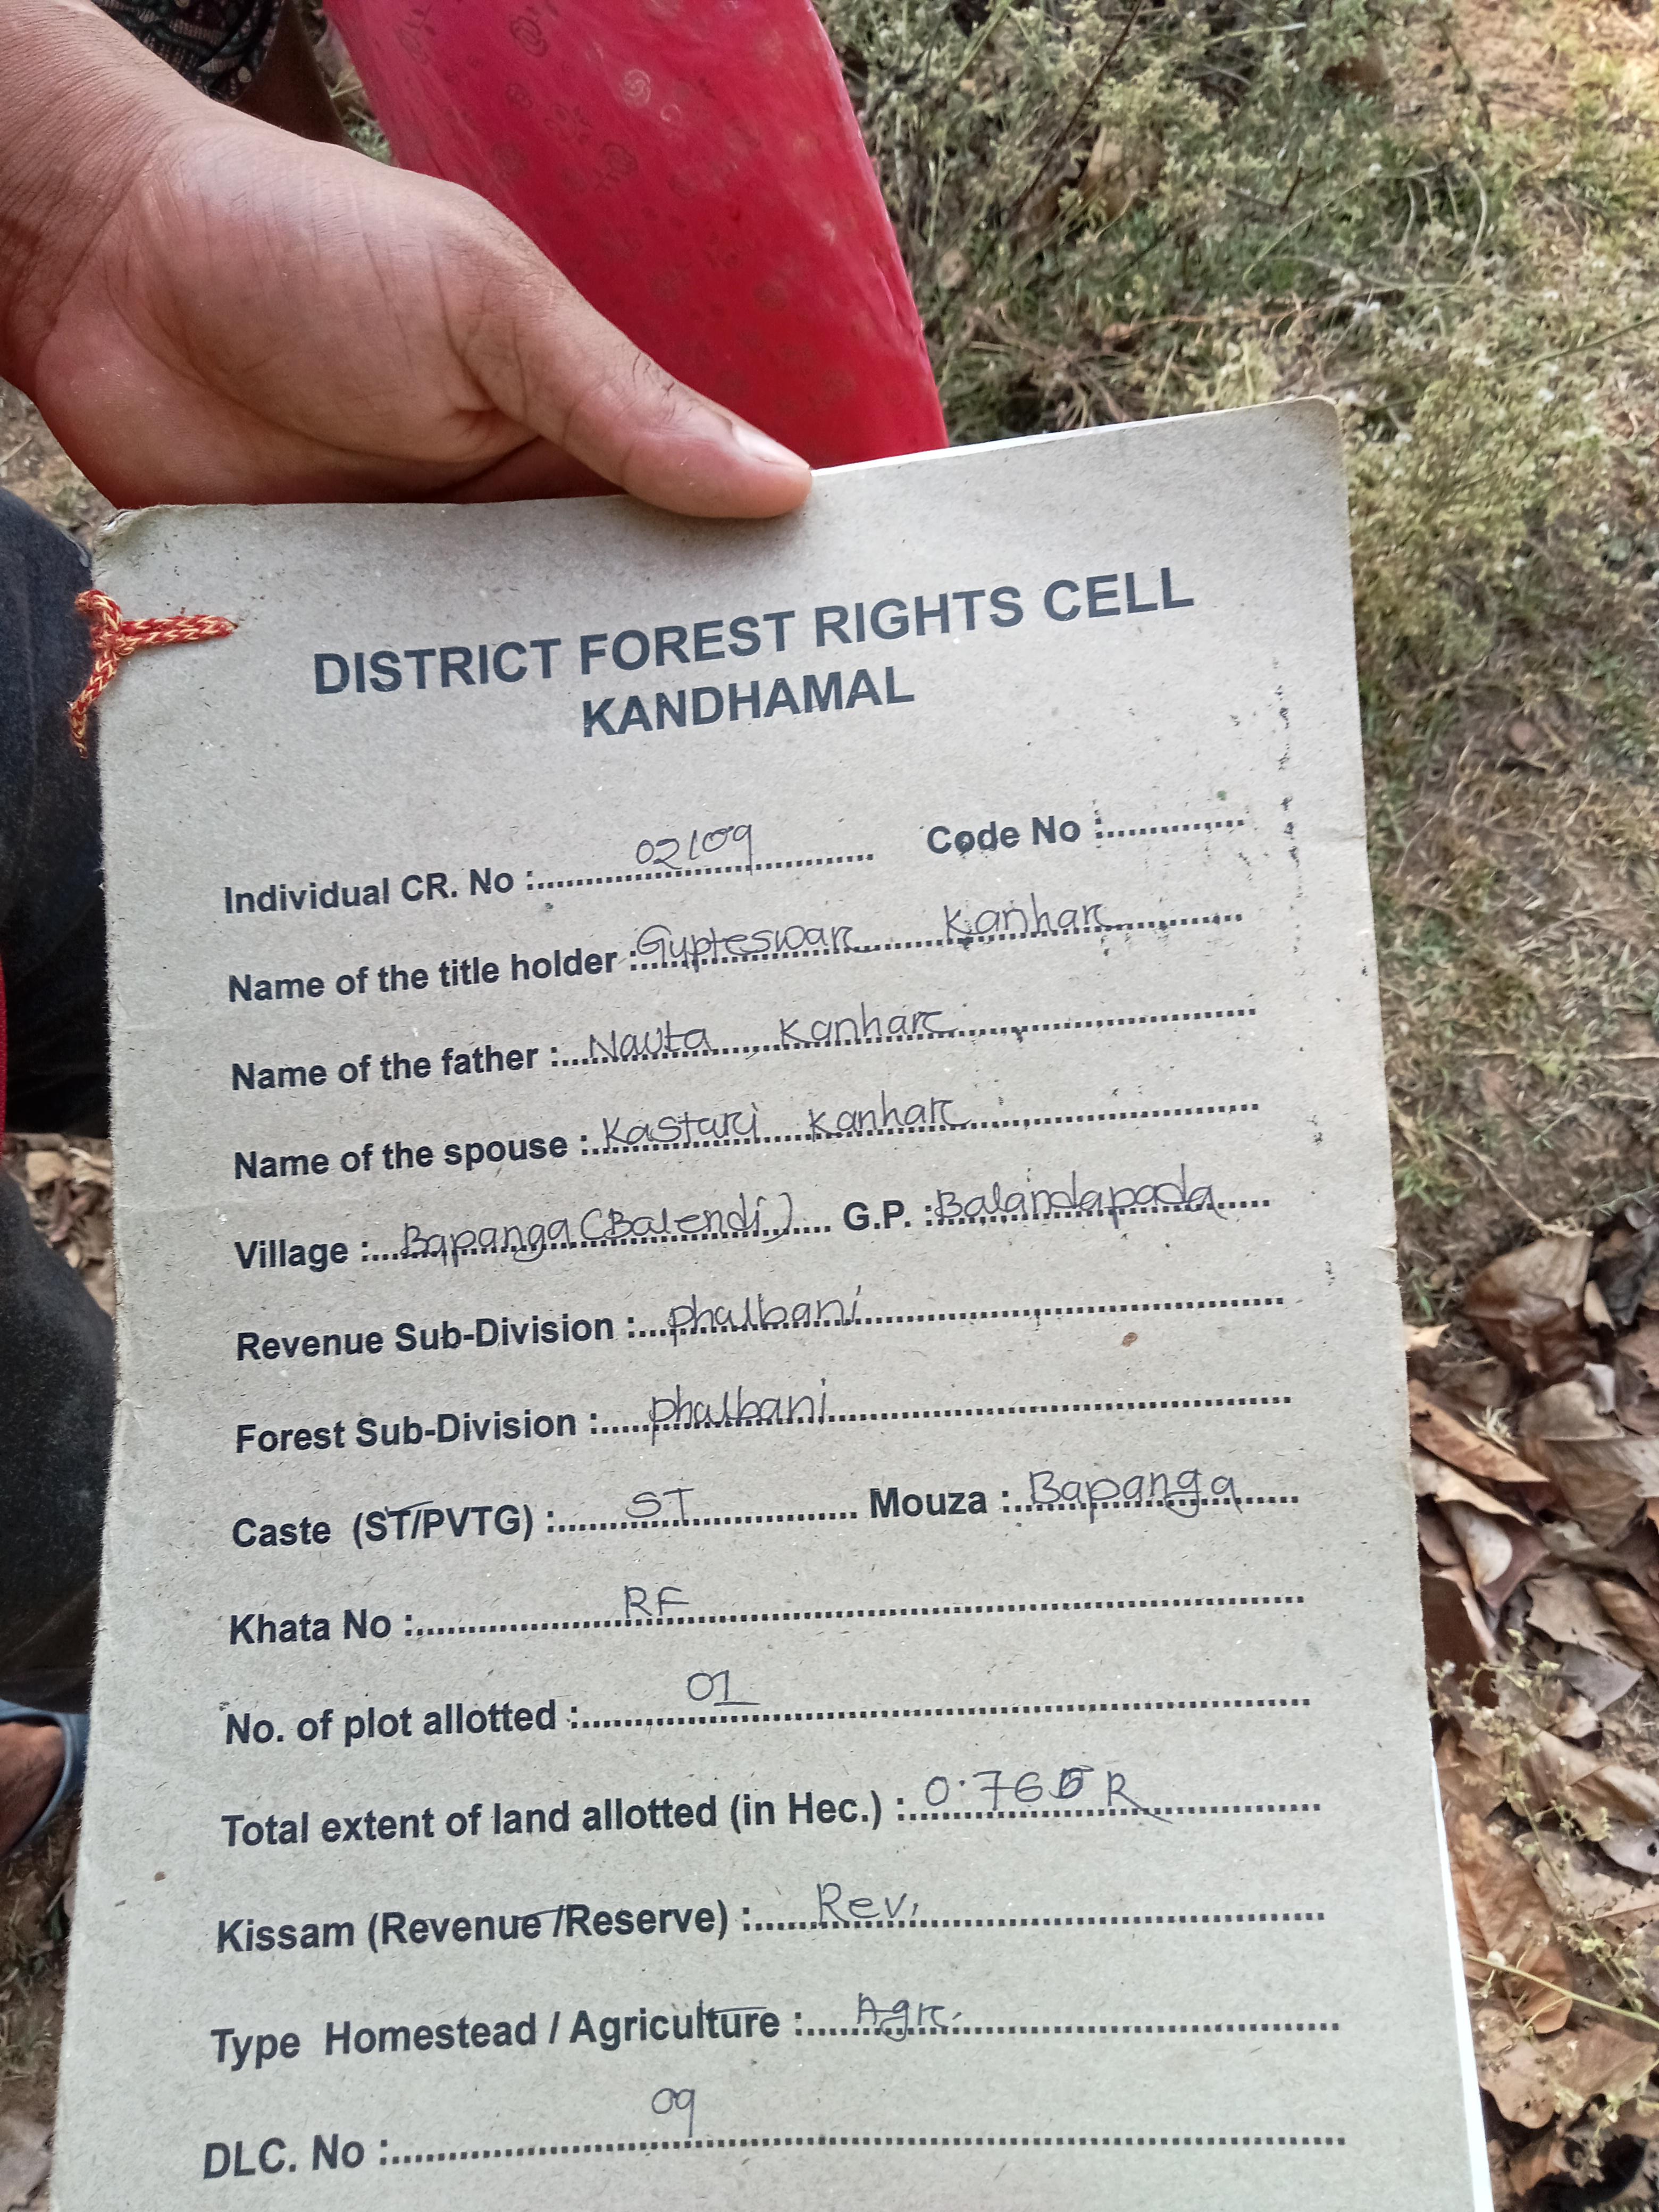 DISTRICT FOREST RIGHTS CELL
KANDHAMAL
Individual CR. No : 02109 Code No :
Name of the title holder : Gupteswar Kanhar
Name of the father : Nauta Kanhar
Name of the spouse : Kasturi Kanhar
Village : Bapanga (Balendi) G.P. : Balandapada
Revenue Sub-Division : phulbani
Forest Sub-Division : phulbani
Caste (ST/PVTG) : ST Mouza : Bapanga
Khata No : RF
No. of plot allotted : 01
Total extent of land allotted (in Hec.) :
Kissam (Revenue /Reserve) : Rev.
Type Homestead / Agriculture : Agr.
DLC. No : 09